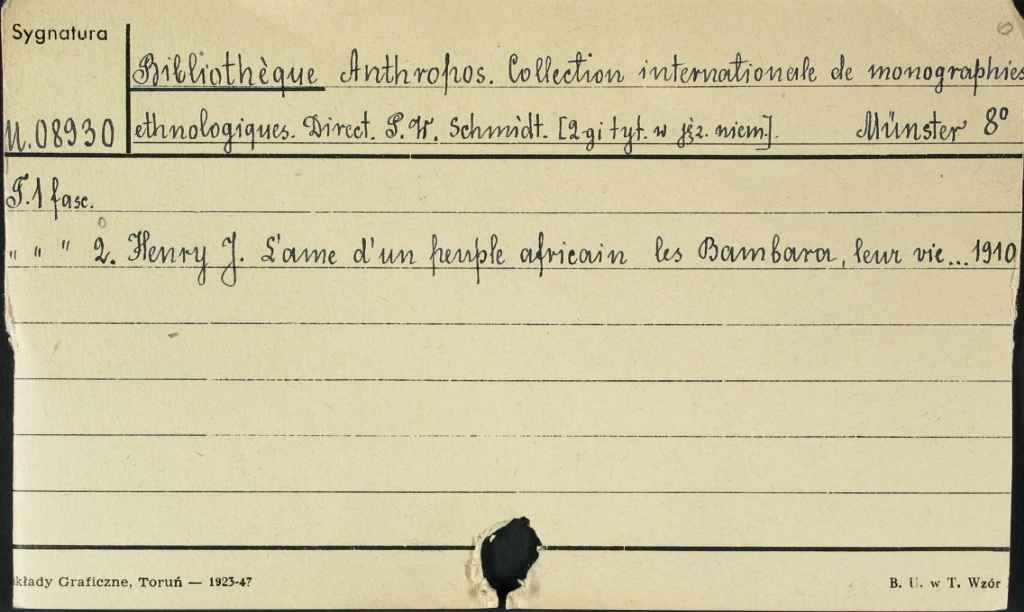 Sygnatura
Bibliothèque Anthropos. Collection internationale de monographies
U.08930 ethnologiques. Direct. P.W. Schmidt. [2-gi tyt. w jęz. niem.]. Münster 8º
T.1 fasc.
" " " 2. Henry J. L'ame d'un peuple africain les Bambara, leur vie...1910
kłady Graficzne, Toruń — 1923-47 B. U. w T. Wzór